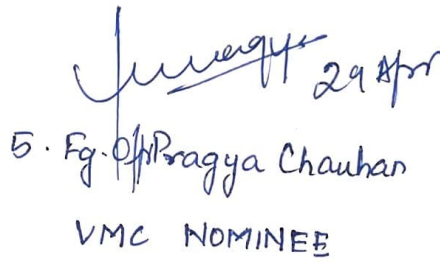 29 Apr
5. Fg. Offr Pragya Chauhan
VMC NOMINEE